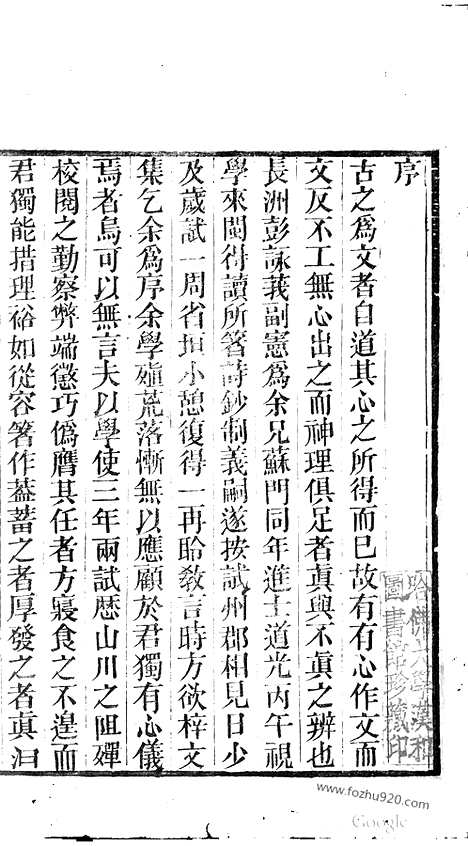 序
古之爲文者自道其心之所得而已故有有心作文而
文反不工無心出之而神理俱足者眞與不眞之辨也
長洲彭詠莪副憲爲余兄蘇門同年進士道光丙午視
學來閩得讀所箸詩鈔制義嗣遂按試州郡相見日少
及歲試一周省垣小憩復得一再聆敎言時方欲梓文
集乞余爲序余學殖荒落慚無以應顧於君獨有心儀
焉者烏可以無言夫以學使三年兩試歷山川之阻殫
校閱之勤察弊端懲巧僞膺其任者方寢食之不遑而
君獨能措理裕如從容箸作葢蓄之者厚發之者眞洵
哈佛大學漢和
圖書館珍藏印
www.fozhu920.com
Google